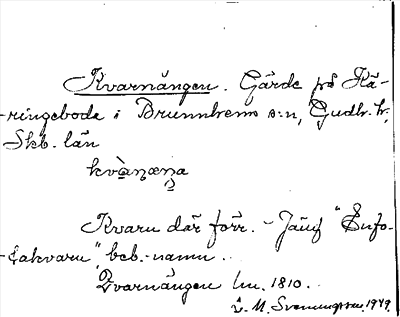 Kvarnängen. Gärde på Kä-
ringeboda i Brunnhems s:n, Gudh. hd,
Skb. län
kvà̱ṉæṉa
Kvarn där förr. – Jämf "Enfo-
takvarn", beb.-namn.
Qvarnängen lm. 1810.
I. M. Svenungsson. 1949.